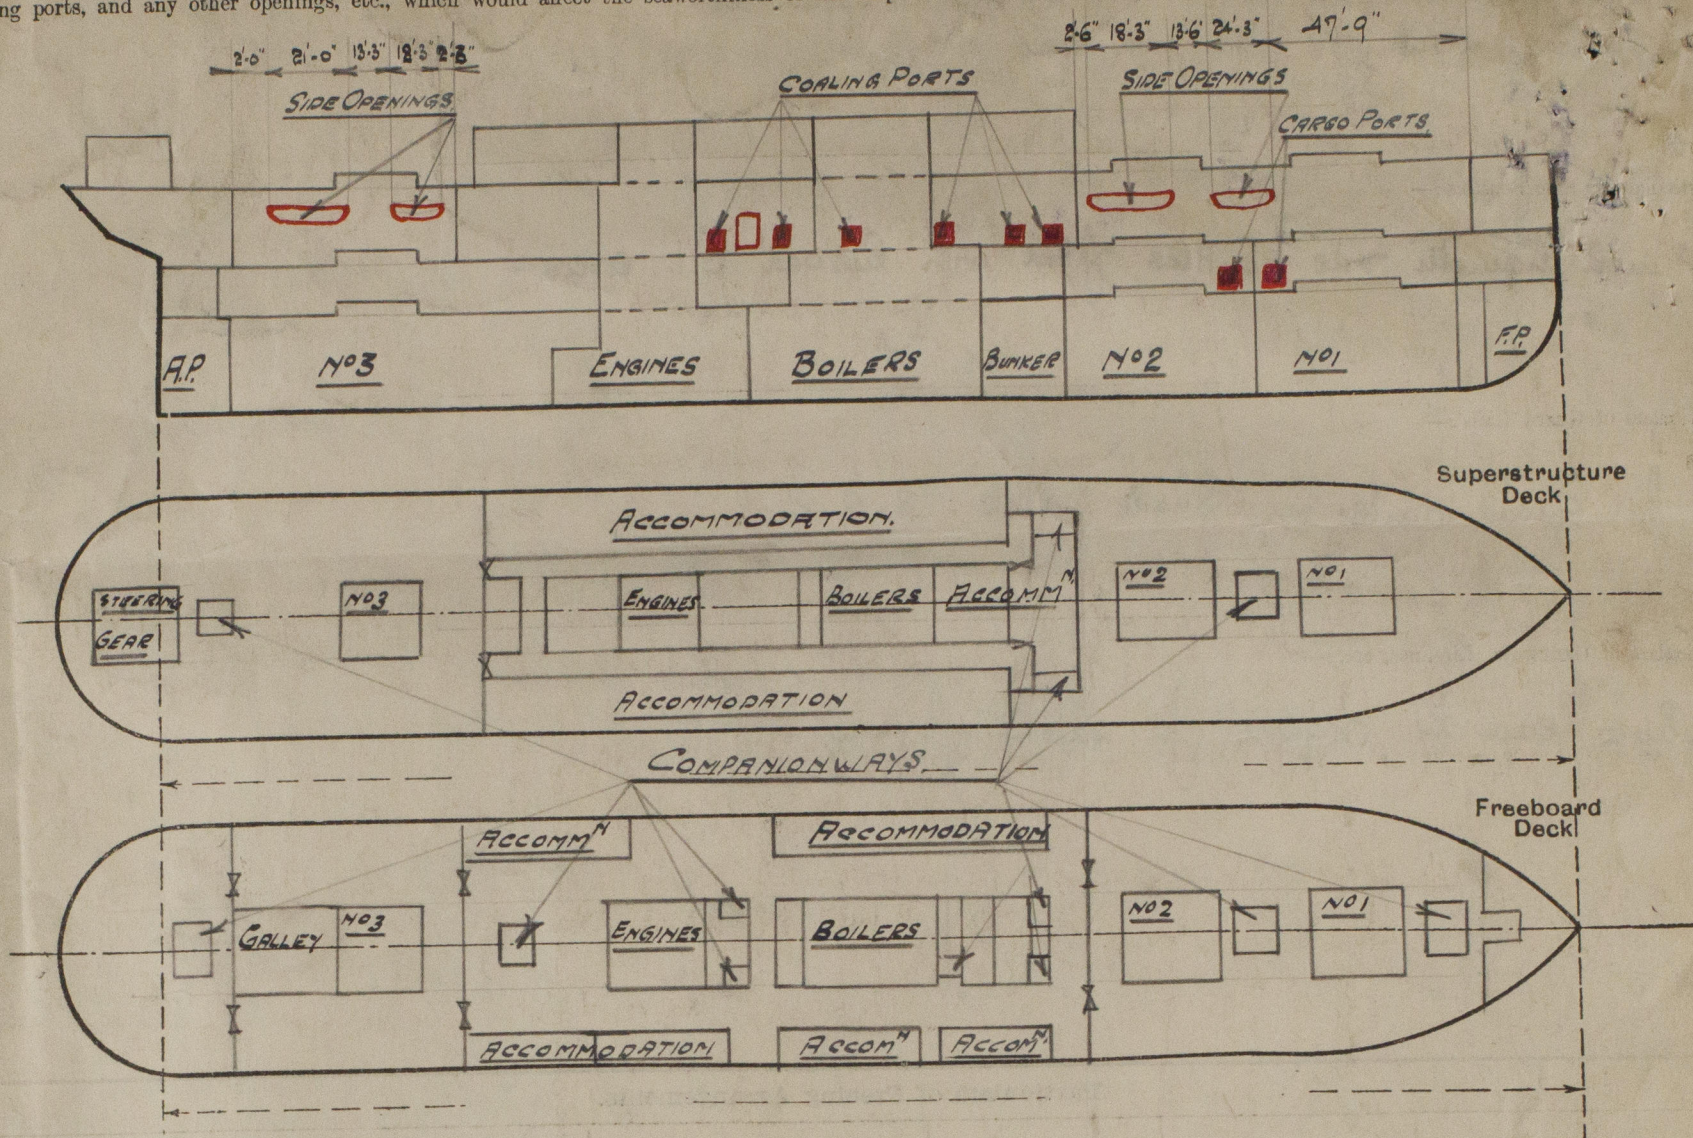 ng ports, and any other openings, etc., which would affect the
2'-6" 18'-3" 13'-6" 24'-3" 47'-9"
2'-0" 21'-0" 13'-3" 18'-3"
SIDE OPENINGS
COALING PORTS
SIDE OPENINGS
CARGO PORTS.
A.P.
No3
ENGINES
BOILERS
BUNKER
No2
No1
F.P.
Superstructure
Deck
ACCOMMODATION.
STEERING
GEAR
No3
ENGINES
BOILERS
ACCOMMN.
No2
No1
ACCOMMODATION
COMPANIONWAYS.
Freeboard
Deck
ACCOMMN
ACCOMMODATION
GALLEY
No3
ENGINES
BOILERS
No2
No1
ACCOMMODATION
ACCOMN
ACCOMN.